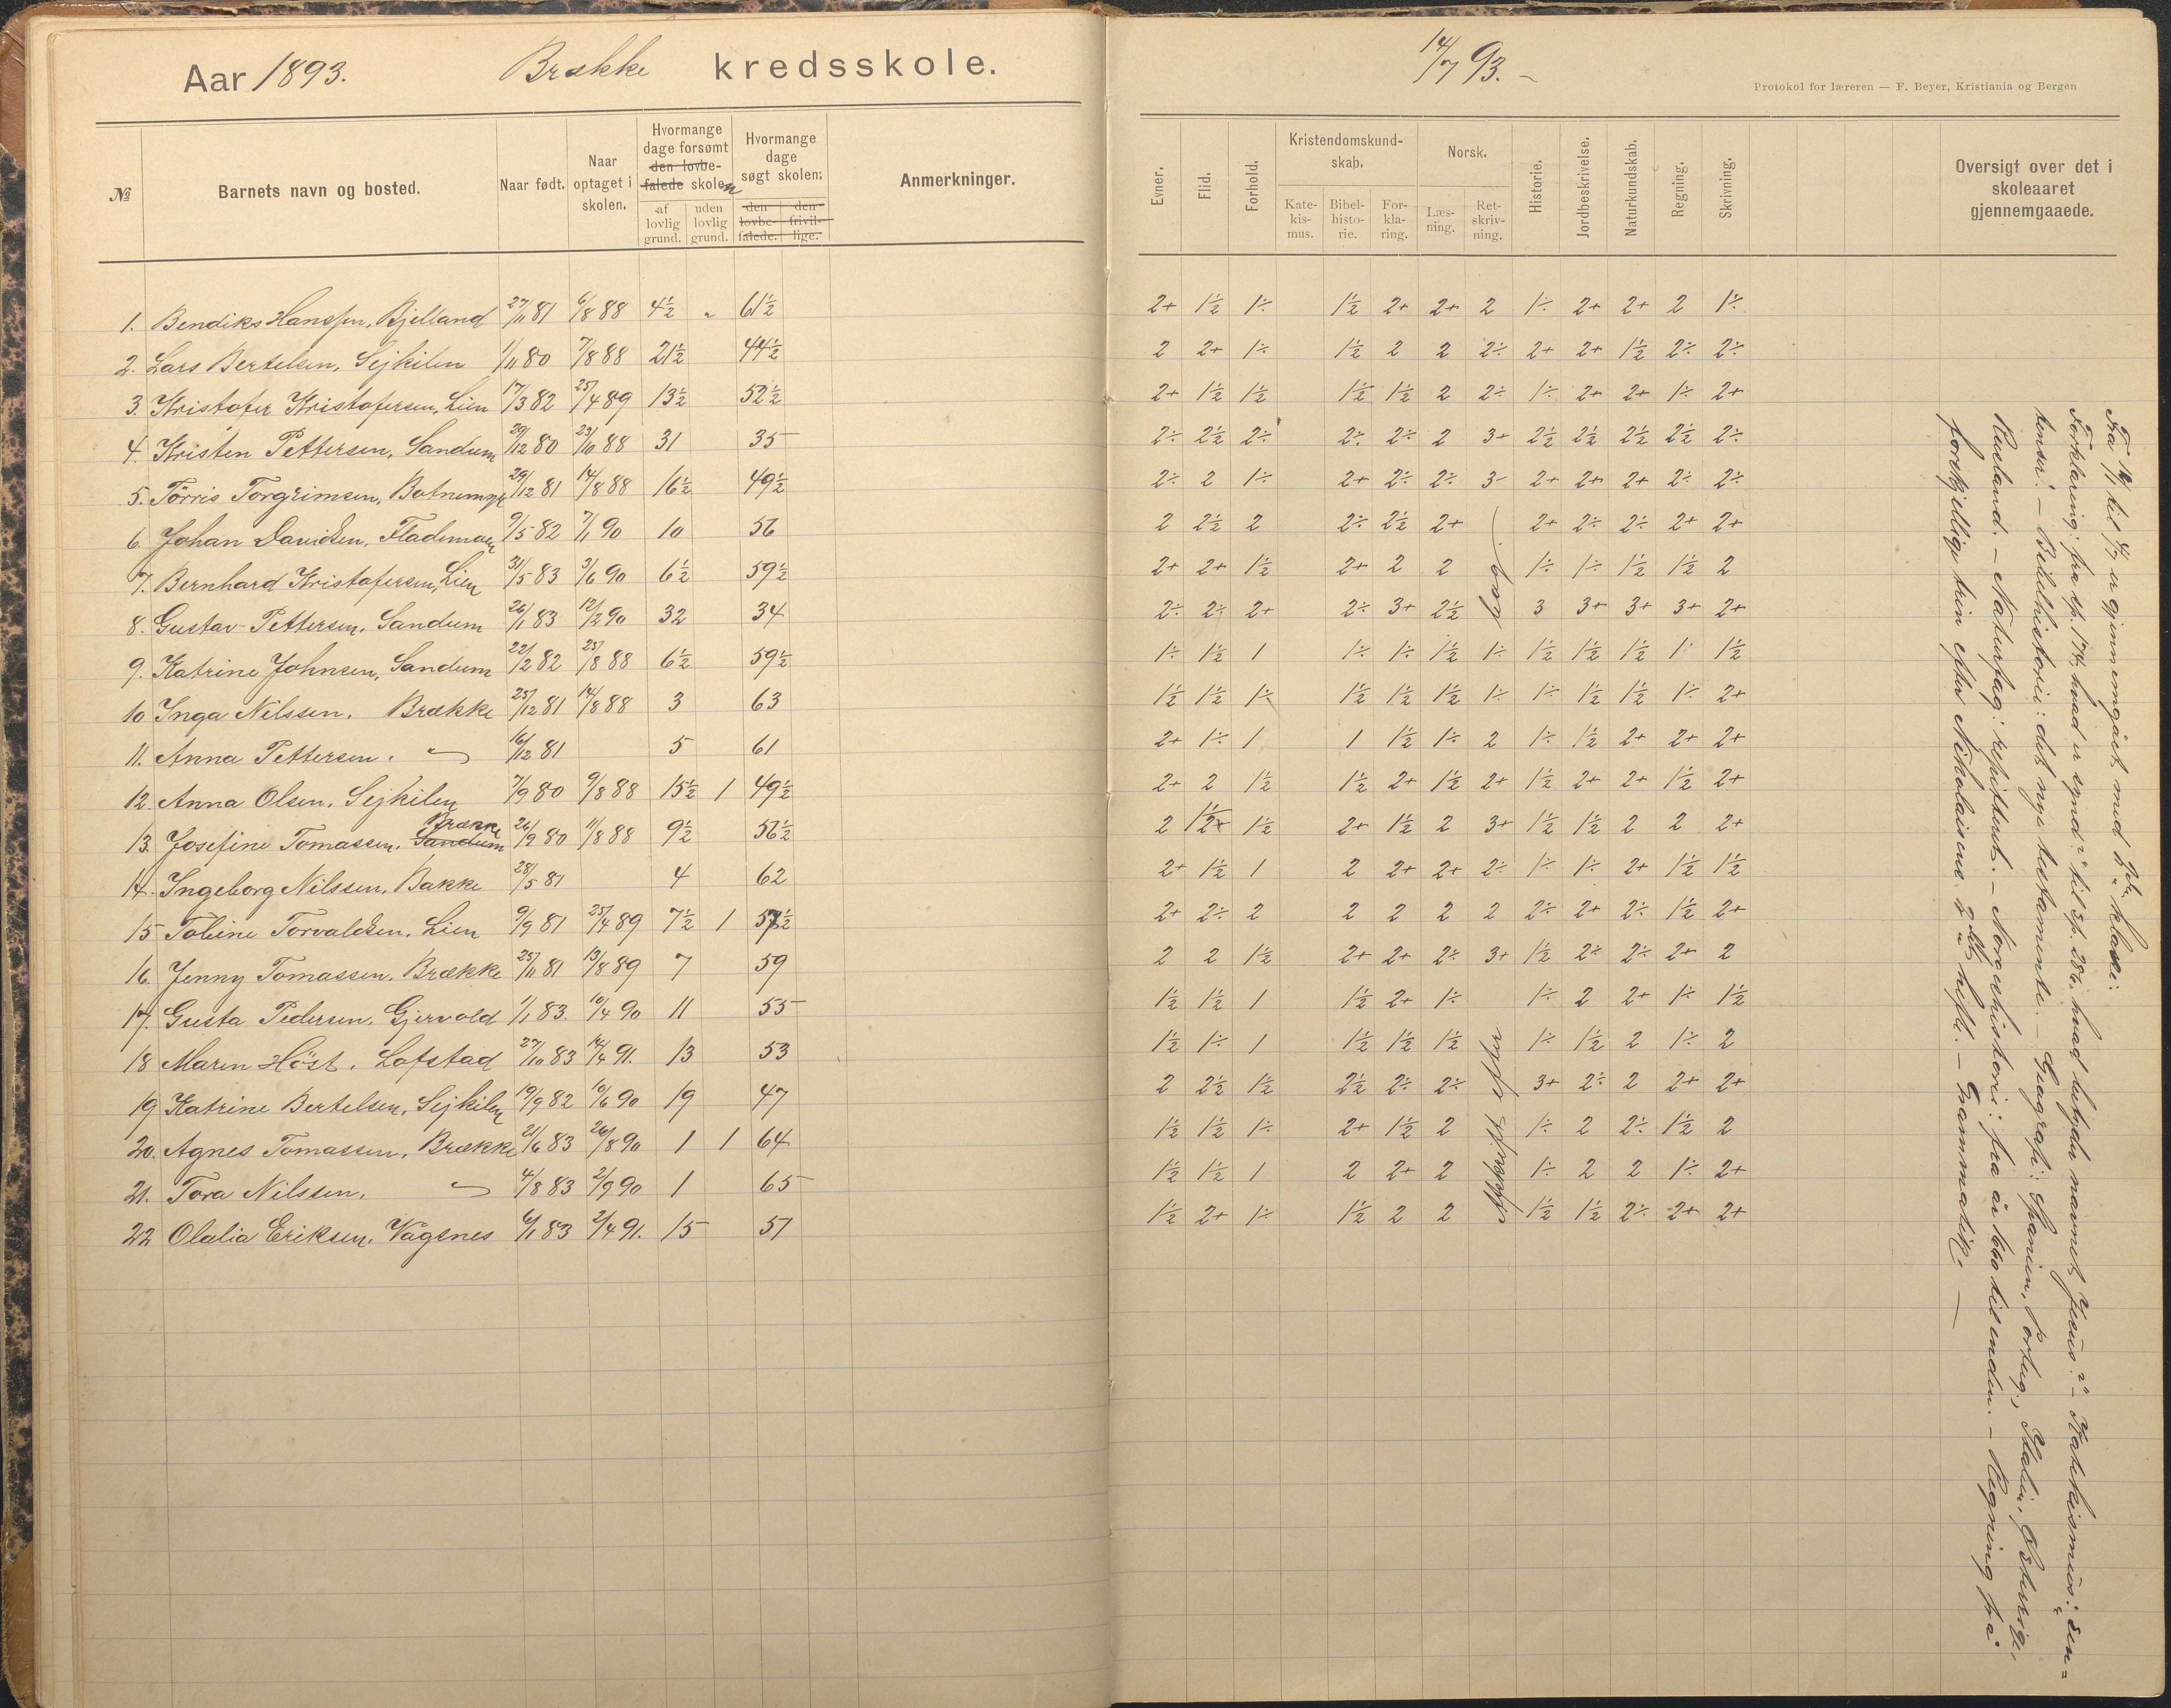 Aar 1893. Brække kredsskole.
№ Barnets navn og bosted. Naar født. Naar optaget i skolen. Hvormange dage forsømt den lovbefalede skolen af lovlig grund. uden lovlig grund. Hvormange dage søgt skolen: den lovbefalede. den frivillige. Anmerkninger.
1. Bendiks Hanssen, Bjelland 27/11 81 6/8 88 4½ „ 61½
2. Lars Bertelsen, Sejkilen 1/11 80 7/8 88 21½ 44½
3. Kristofer Kristofersen, Lien 17/3 82 25/4 89 13½ 52½
4. Kristen Pettersen, Sandum 29/12 80 23/10 88 31 35
5. Törris Torgrimsen, Botnemyr 29/12 81 14/8 88 16½ 49½
6. Johan Davidsen, Flademoen 9/5 82 7/1 90 10 56
7. Bernhard Kristofersen, Lien 31/5 83 3/6 90 6½ 59½
8. Gustav Pettersen, Sandum 26/1 83 12/2 90 32 34
9. Katrine Johnsen, Sandum 22/12 82 25/8 88 6½ 59½
10 Inga Nilssen. Brække 25/12 81 14/8 88 3 63
11. Anna Pettersen. 〃 16/12 81 5 61
12. Anna Olsen, Sejkilen 7/9 80 9/8 88 15½ 1 49½
13. Josefine Tomassen. Sandum Brække 26/9 80 11/8 88 9½ 56½
14. Ingeborg Nilssen, Bakke 28/5 81 4 62
15 Tobine Torvaldsen. Lien 9/9 81 25/4 89 7½ 1 57½
16. Jenny Tomassen. Brække 25/11 81 13/8 89 7 59
17. Gusta Pedersen. Gjervold 1/1 83. 10/4 90 11 55
18 Maren Höst. Lofstad 27/10 83 14/4 91. 13 53
19 Katrine Bertelsen, Sejkilen 19/9 82 10/6 90 19 47
20. Agnes Tomassen, Brække 21/6 83 26/8 90 1 1 64
21. Tora Nilssen. 〃 4/8 83 2/9 90 1 65
22 Olalia Eriksen. Vågsnes 6/1 83 2/4 91. 15 51
14/7 93. –
Protokol for læreren — F. Beyer, Kristiania og Bergen
Evner. Flid. Forhold. Kristendomskundskab. Katekismus. Bibelhistorie. Forklaring. Norsk. Læsning. Retskrivning. Historie. Jordbeskrivelse. Naturkundskab. Regning. Skrivning. Oversigt over det i skoleaaret gjennemgaaede.
2+ 1½ 1÷ 1½ 2+ 2+ 2 1÷ 2+ 2+ 2 1÷
2 2+ 1÷ 1½ 2 2 2÷ 2+ 2+ 1½ 2÷ 2÷
2+ 1½ 1½ 1½ 1½ 2 2÷ 1÷ 2+ 2+ 1÷ 2+
2÷ 2½ 2÷ 2÷ 2÷ 2 3+ 2½ 2½ 2½ 2½ 2÷
2÷ 2 1÷ 2+ 2÷ 2÷ 3- 2+ 2+ 2+ 2÷ 2÷
2 2½ 2 2÷ 2½ 2+ 2+ 2÷ 2÷ 2+ 2+
2+ 2+ 1½ 2+ 2 2 1÷ 1÷ 1½ 1½ 2
2÷ 2÷ 2+ 2÷ 3+ 2½ 3 3+ 3+ 3+ 2+
1÷ 1½ 1 1÷ 1÷ 1½ 1÷ 1½ 1½ 1½ 1÷ 1½
1½ 1½ 1÷ 1½ 1½ 1½ 1÷ 1÷ 1½ 1½ 1÷ 2+
2+ 1÷ 1 1 1½ 1÷ 2 1÷ 1½ 2+ 2+ 2+
2+ 2 1½ 1½ 2+ 1½ 2+ 1½ 2+ 2+ 1½ 2+
2 1½ 1½ 2+ 1½ 2 3+ 1½ 1½ 2 2 2+
2+ 1½ 1 2 2+ 2+ 2÷ 1÷ 1÷ 2+ 1½ 1½
2+ 2÷ 2 2 2 2 2 2÷ 2+ 2÷ 1½ 2+
2 2 1½ 2+ 2+ 2÷ 3+ 1½ 2÷ 2÷ 2+ 2
1½ 1½ 1 1½ 2+ 1÷ 1÷ 2 2+ 1÷ 1½
1½ 1÷ 1 1½ 1½ 1½ 1÷ 1½ 2 1÷ 2
2 2½ 1½ 2½ 2÷ 2÷ 3+ 2÷ 2 2+ 2+
1½ 1½ 1÷ 2+ 1½ 2 1÷ 2 2÷ 1½ 2
1½ 1½ 1 2 2+ 2 1÷ 2 2 1÷ 2+
1½ 2+ 1÷ 1½ 2 2 1½ 1½ 2÷ 2+ 2+
til er gjennemgået med klasse:
Forklaring: fra sp. 174, hvad er synd?" til sp. 286. hvad betyder navnet Jesus?" – Katekismus: „den
– Bibelhistorie: det nye testamente. – Geografi: Spanien, Portug., Italien, Østerrig,
Rusland. – Naturfag: repeteret. – Norgeshistorie: fra år 1660 til enden. – Regning på
forskjellige trin efter Nikolaisens hefte. – Grammatik. –